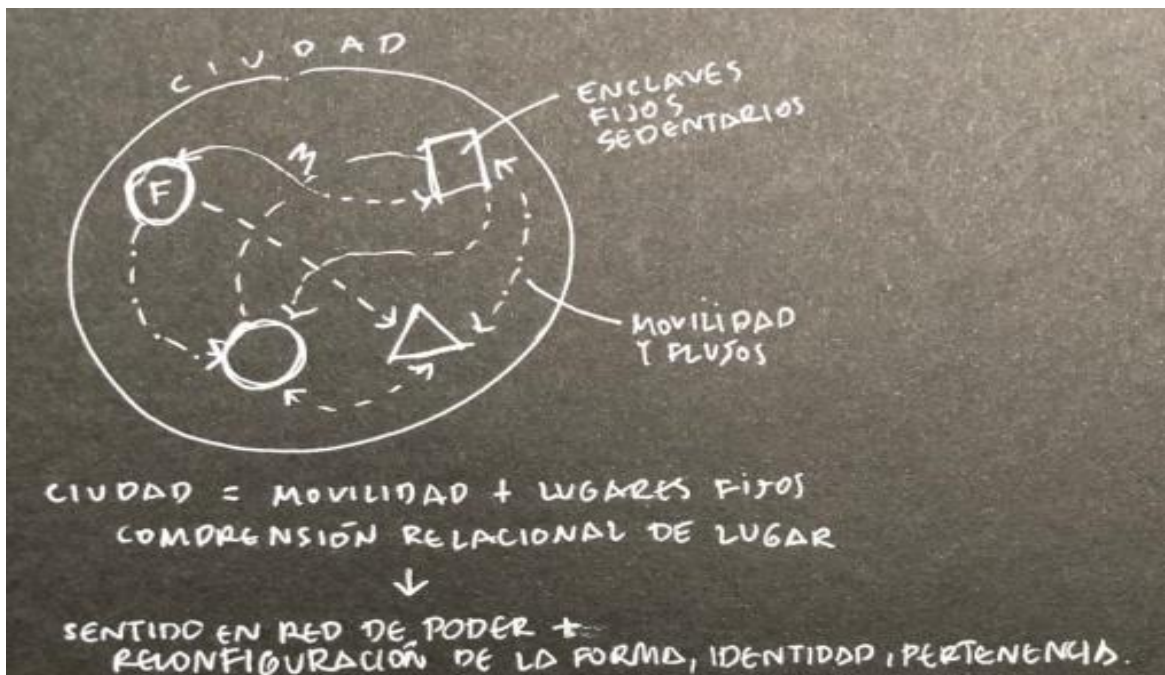 CIUDAD
ENCLAVES
FIJOS
SEDENTARIOS
F
MOVILIDAD
Y FLUJOS
CIUDAD = MOVILIDAD + LUGARES FIJOS
COMPRENSIÓN RELACIONAL DE LUGAR
↓
SENTIDO EN RED DE PODER +
RECONFIGURACIÓN DE LA FORMA, IDENTIDAD, PERTENENCIA.